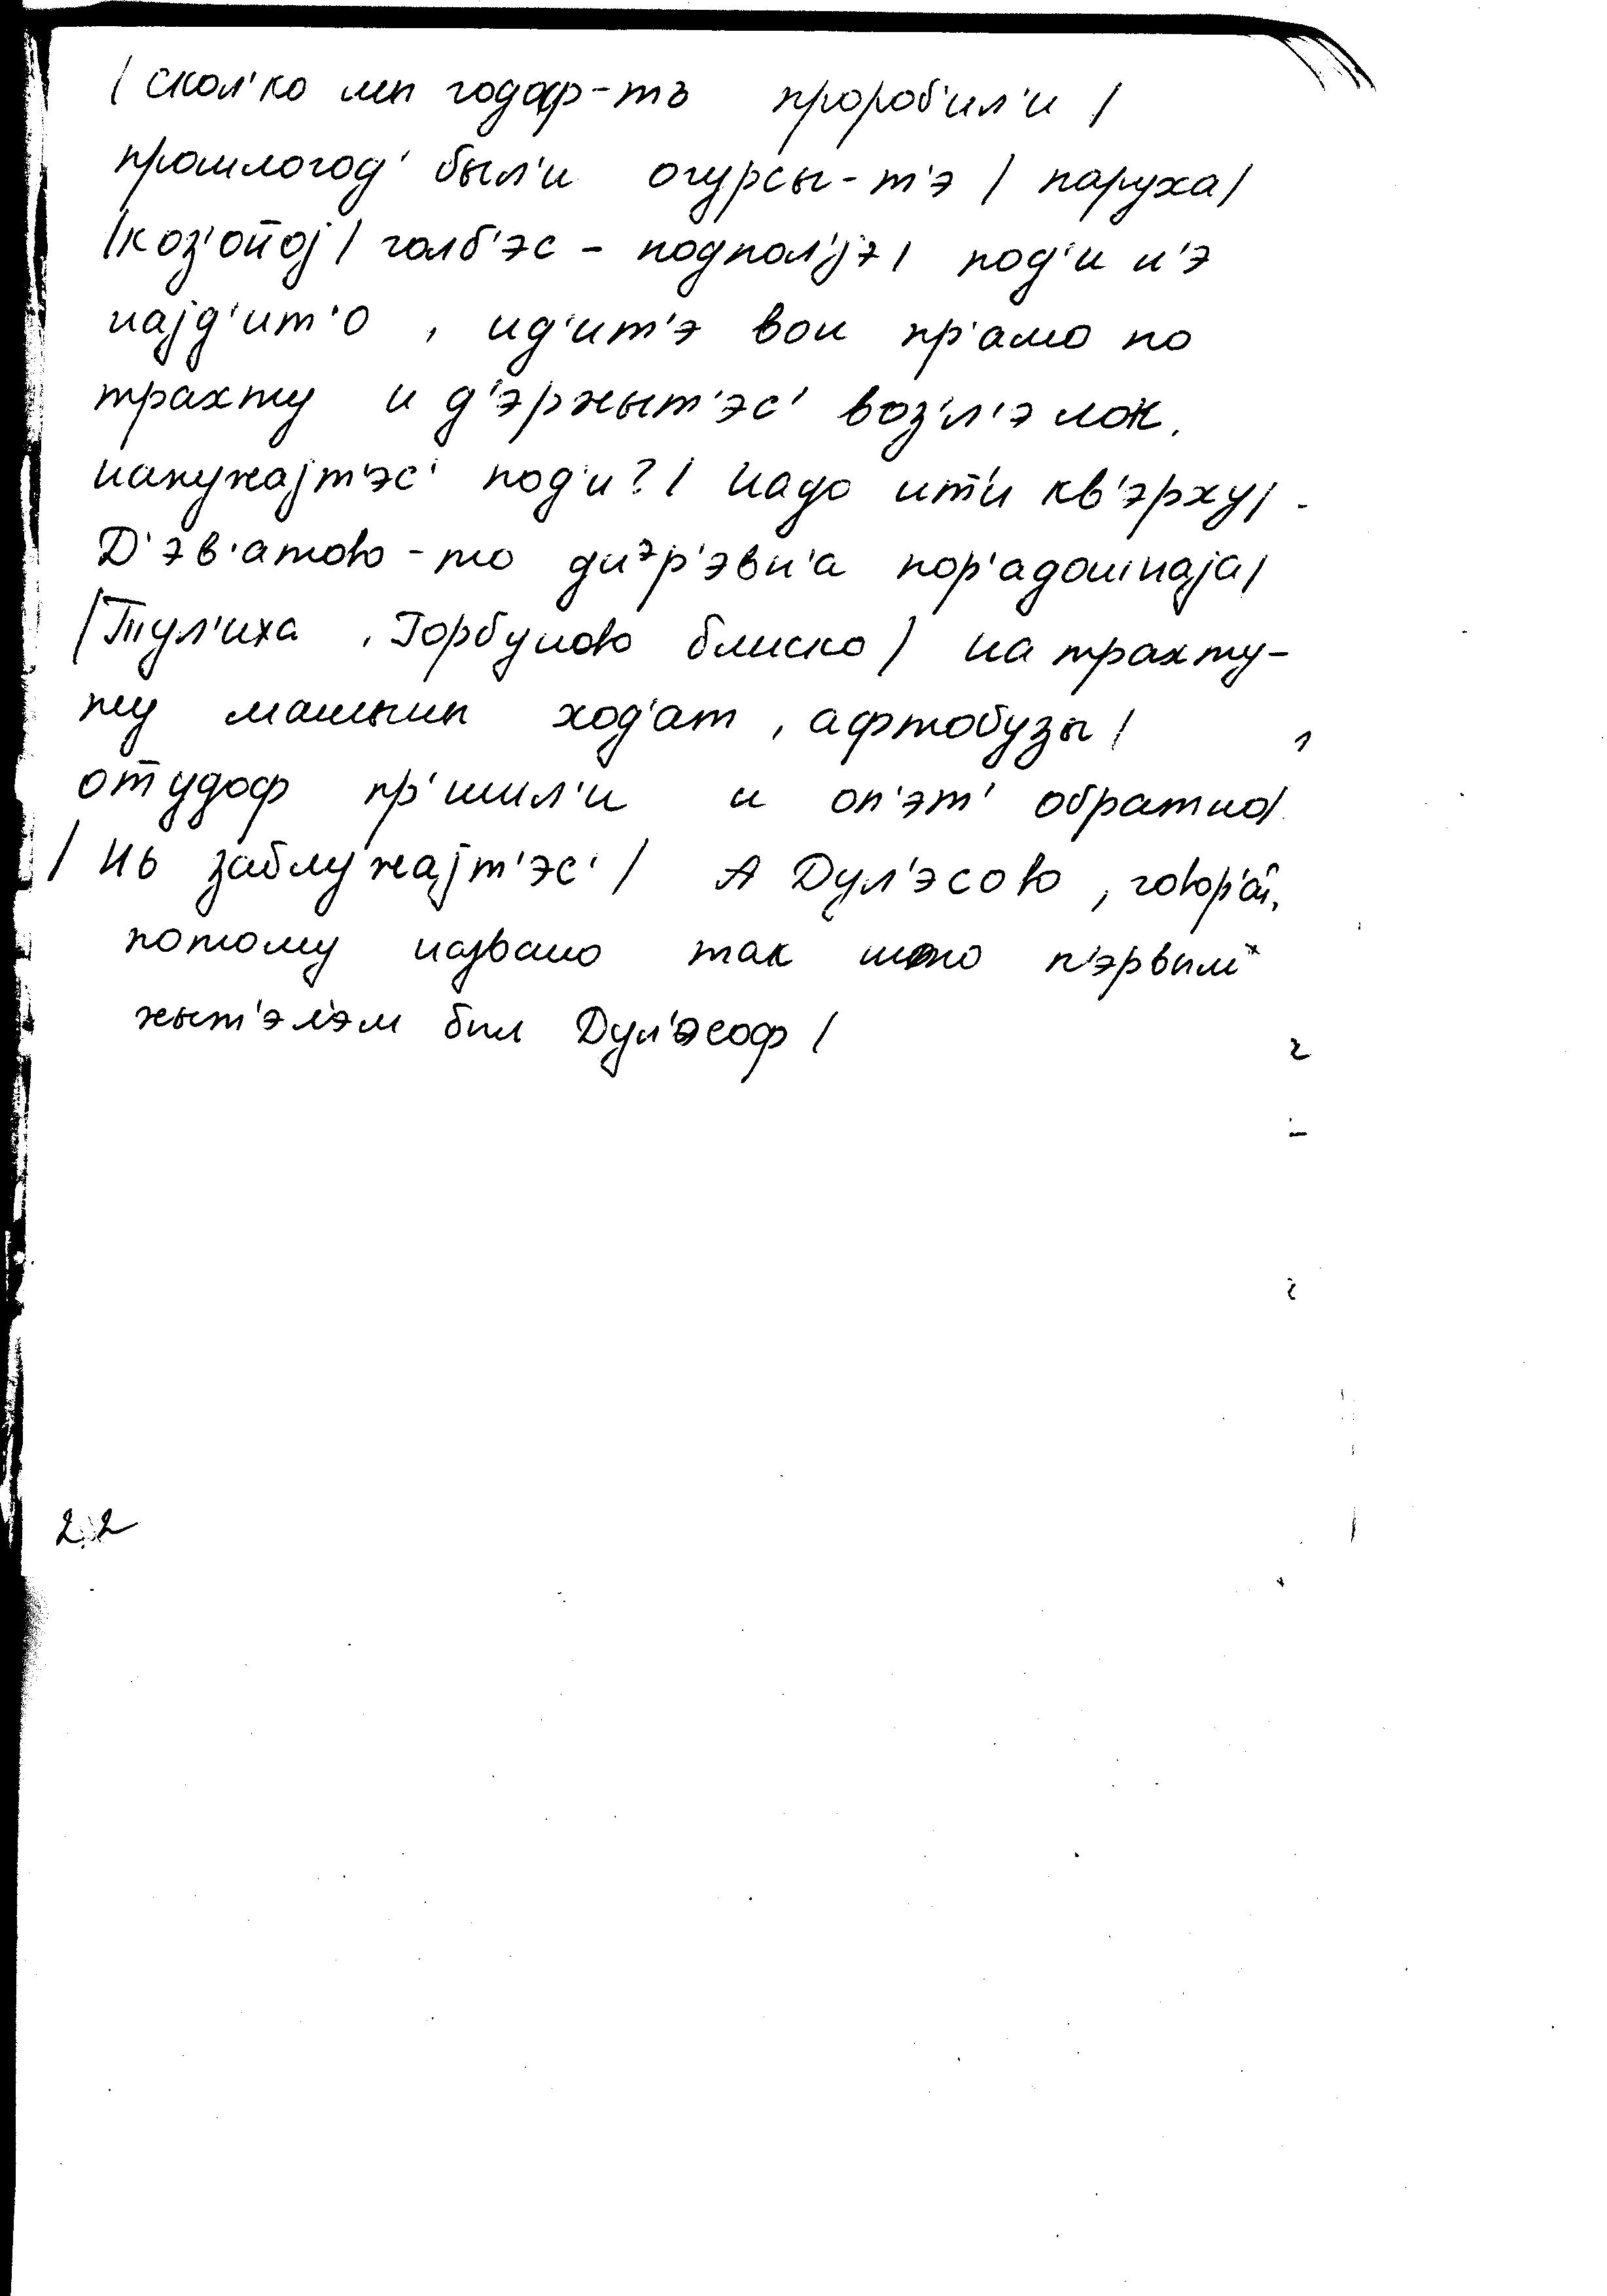 /скол'ко мы годоф-тъ пророб'ил'и /
прошлогод' был'и огурсы-т'э / паруха/
/коз'о̄ној/ голб'эс - подпол'јэ/ под'и н'э
најд'ит'о, ид'ит'э вон пр'амо по
трахту и д'эржыт'эс' воз'л'э лок.
напужајт'эс' под'и? / надо ит'и кв'эрху/
Д'эв'атово-то диэр'эвн'а пор'адошнаја/
/Тул'иха, Горбуново блиско/ на трахту-
жу машыны ход'ат, афтобузы/
отудоф пр'ишл'и и оп'эт' обратно/
/ нь заблужајт'эс' / А Дул'эсово, говор'ат,
потому названо так што п'эрвым
жыт'эл'эм был Дул'эсоф /
22